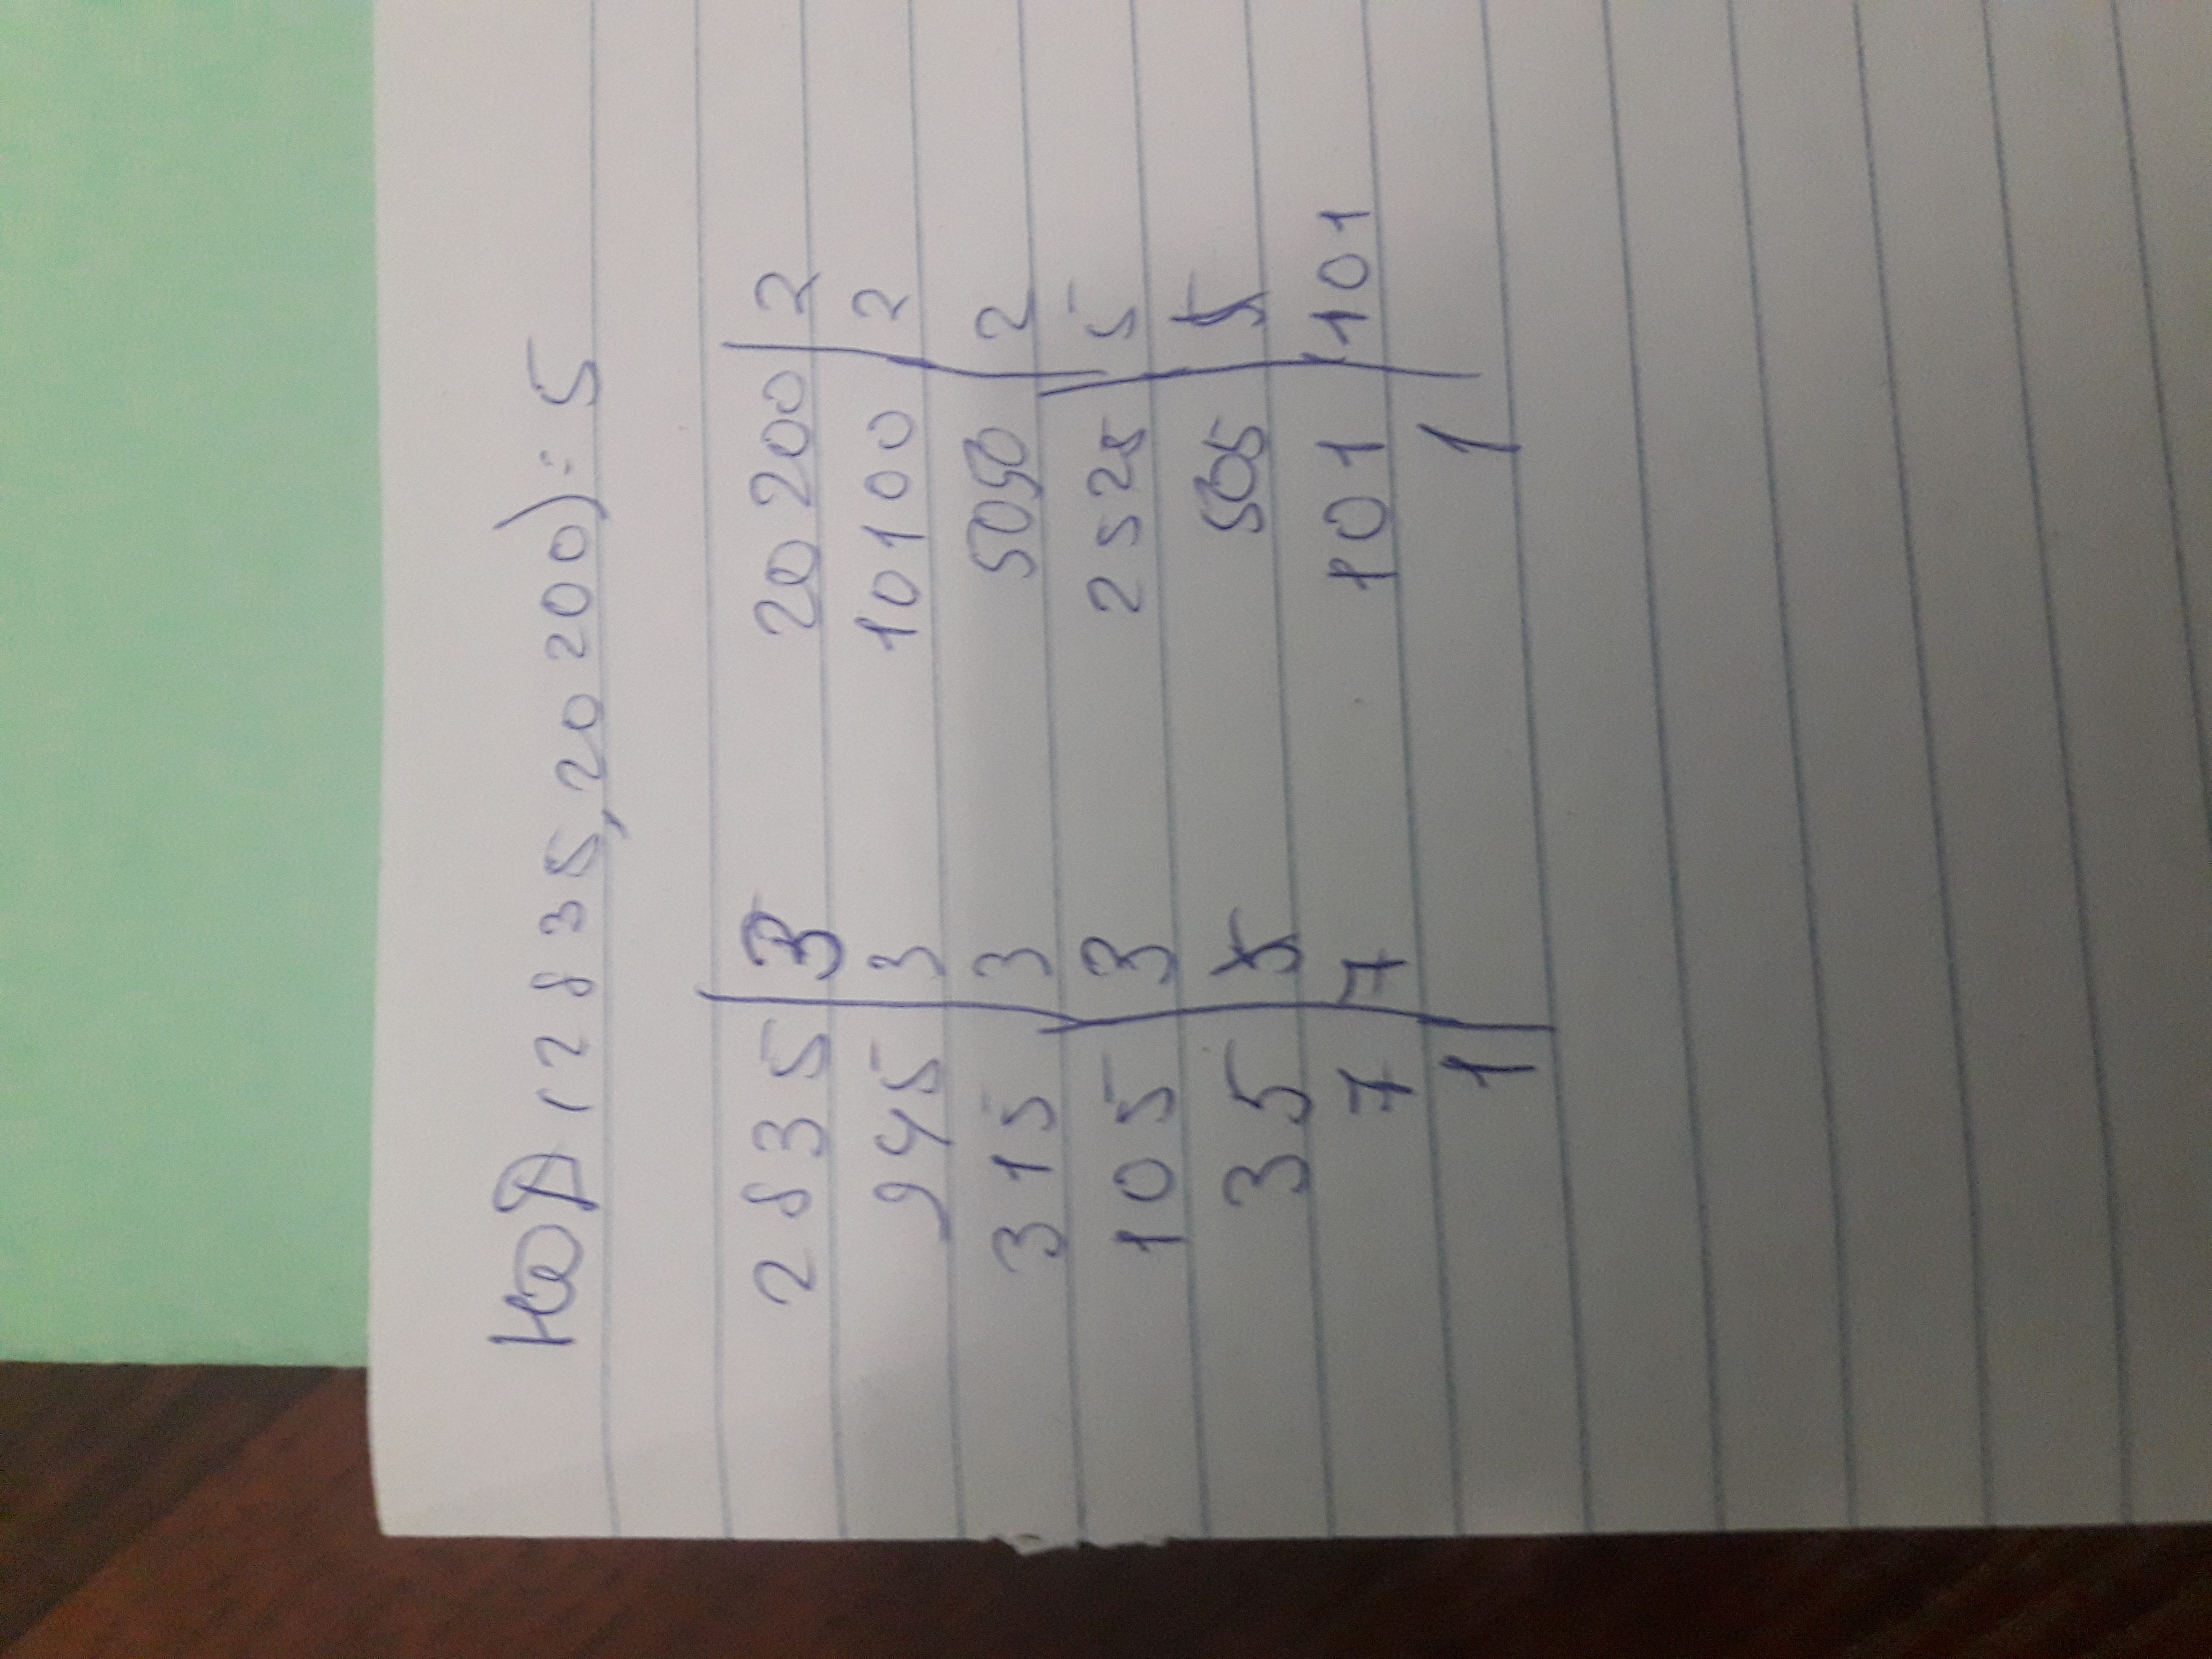 НОД (2835, 20 200) = 5
2835 | 3 20 200 | 2
945 | 3 10100 | 2
315 | 3 5050 | 2
105 | 3 2525 | 5
35 | 5 505 | 5
7 | 7 101 | 101
1 | 1 |